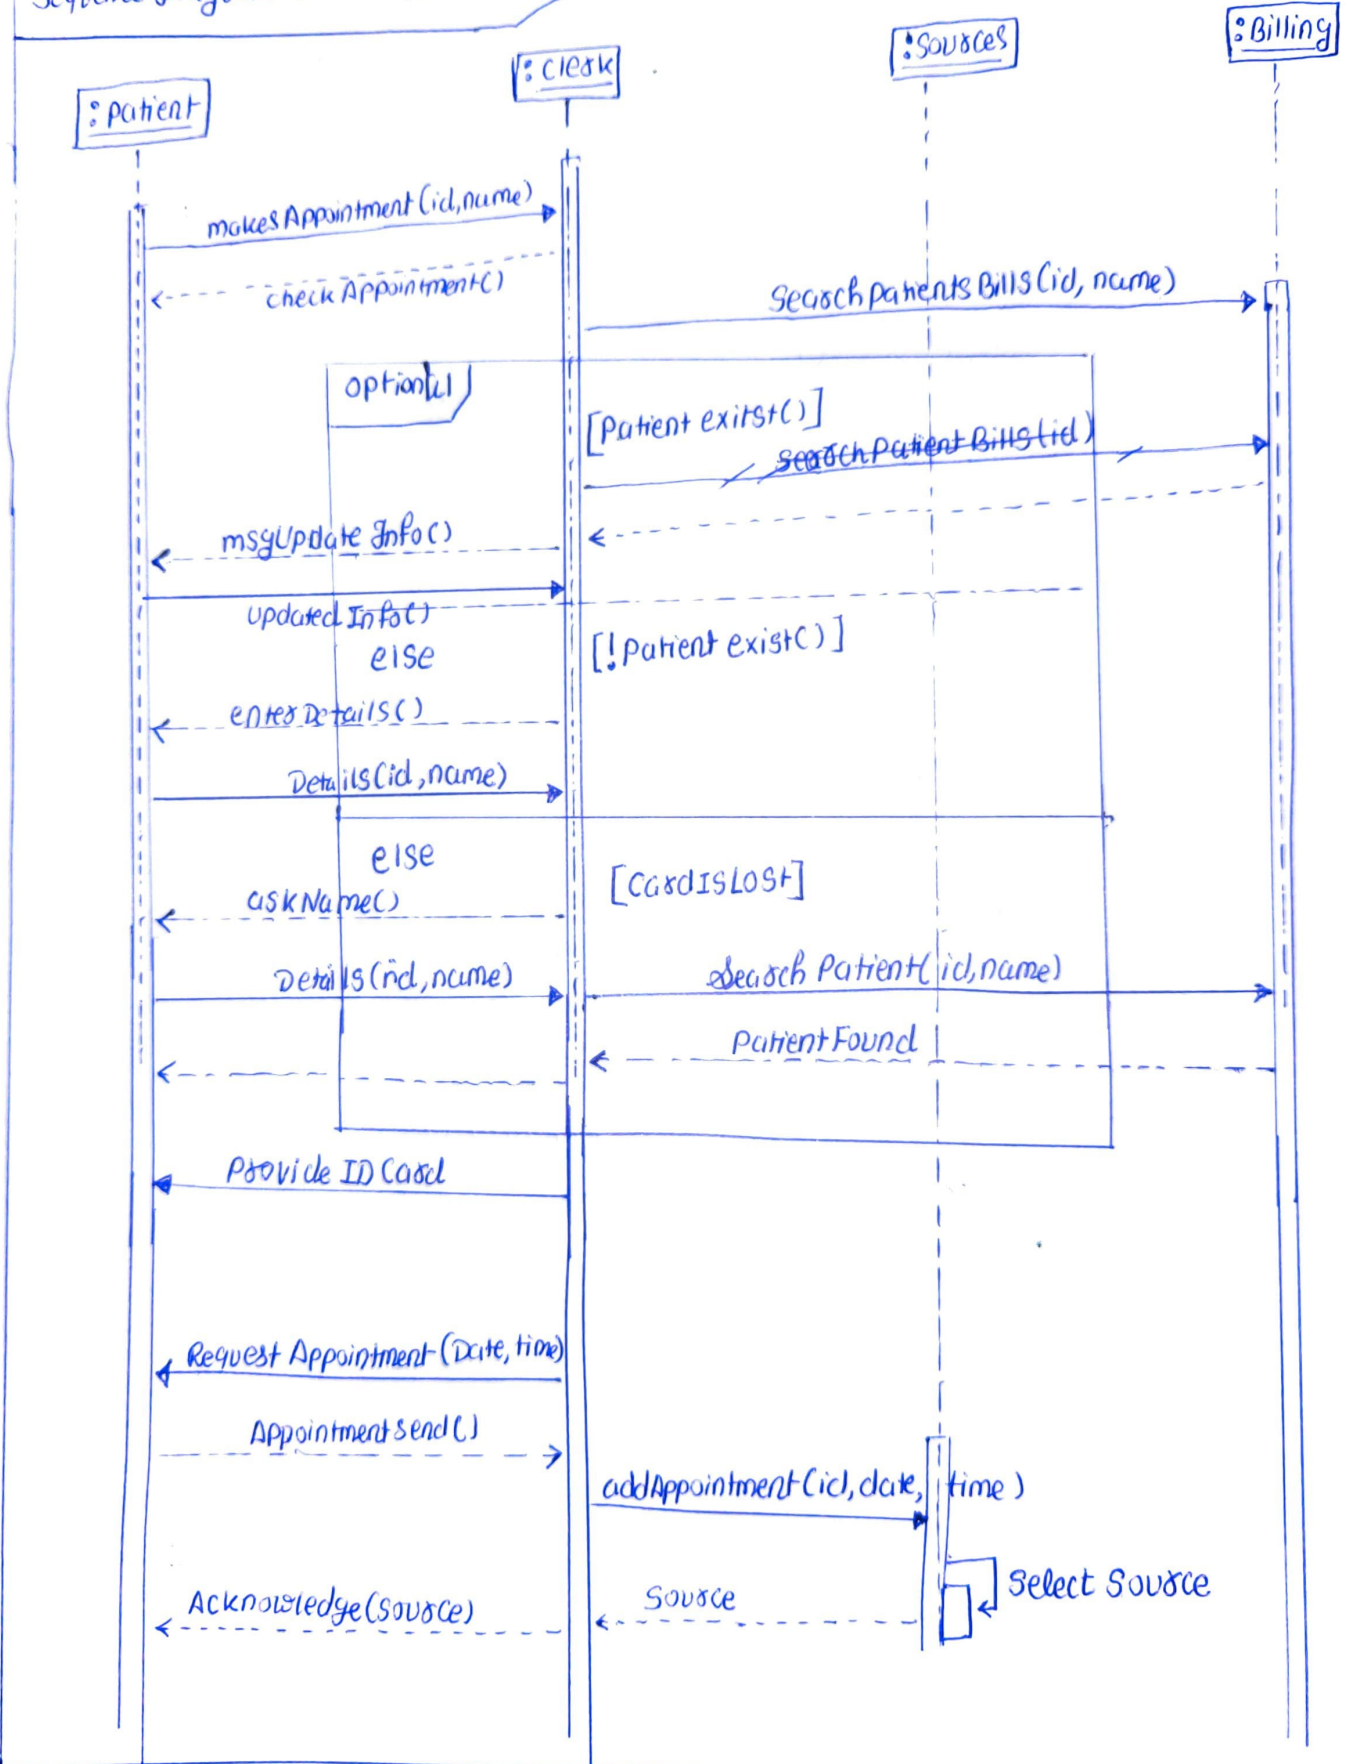 :Billing
:Sources
:Clerk
:Patient
makesAppointment(id,name)
checkAppointment()
SearchPatientsBills(id, name)
[Patient exirst()]
searchPatientBills(id)
msgUpdate Info()
Updated Info()
else
[!Patient exist()]
enterDetails()
Details(id,name)
else
[CardISLost]
askName()
Details(nid,name)
Search Patient(id,name)
PatientFound
Provide ID Card
Request Appointment(Date, time)
AppointmentSend()
addAppointment(id, date, time)
Select Source
Source
Acknowledge(source)